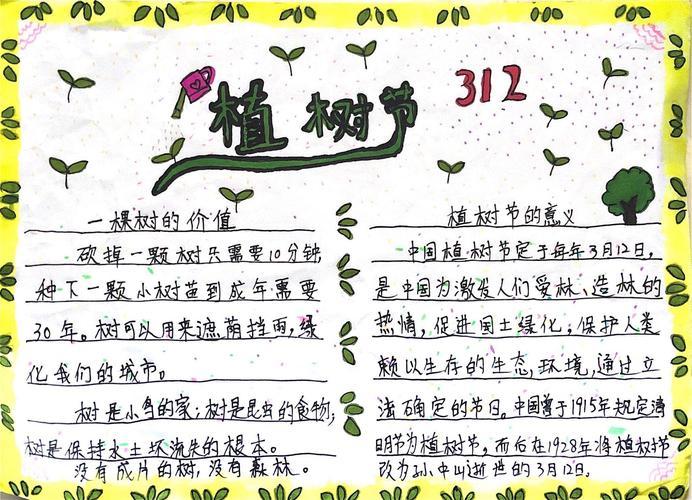 植树节
312
一棵树的价值
砍掉一颗树只需要10分钟,
种下一颗小树苗到成年需要
30年。树可以用来遮荫挡雨,绿
化我们的城市。
树是小鸟的家;树是昆虫的食物;
树是保持水土不流失的根本。
没有成片的树,没有森林。
植树节的意义
中国植树节定于每年3月12日,
是中国为激发人们爱林、造林的
热情,促进国土绿化,保护人类
赖以生存的生态环境,通过立
法确定的节日。中国曾于1915年规定清
明节为植树节,而后在1928年将植树节
改为孙中山逝世的3月12日。